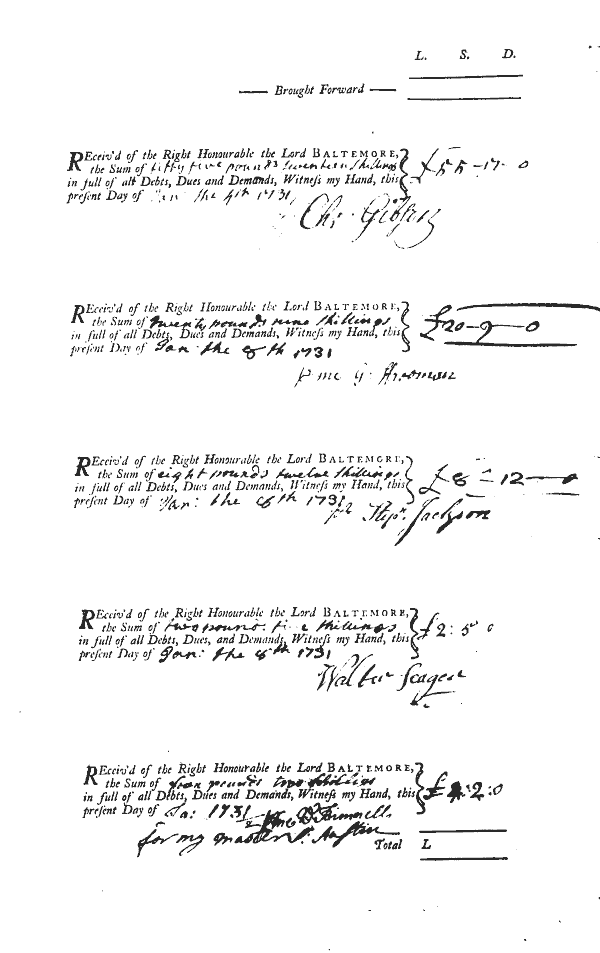 L. S. D.
Brought Forward
REceiv'd of the Right Honourable the Lord BALTEMORE,
the Sum of fifty five pounds seventeen shillings
in full of all Debts, Dues and Demands, Witneſs my Hand, this
preſent Day of Jan: the 4th 1731
£55-17-0
Chr. Gibson
REceiv'd of the Right Honourable the Lord BALTEMORE,
the Sum of twenty pounds nine shillings
in full of all Debts, Dues and Demands, Witneſs my Hand, this
preſent Day of Jan: the 8th 1731
£20-9-0
p me G:
REceiv'd of the Right Honourable the Lord BALTEMORE,
the Sum of eight pounds twelve shillings
in full of all Debts, Dues and Demands, Witneſs my Hand, this
preſent Day of Jan: the 8th 1731
£8=12-0
Stepn. Jackson
REceiv'd of the Right Honourable the Lord BALTEMORE,
the Sum of two pounds five shillings
in full of all Debts, Dues, and Demands, Witneſs my Hand, this
preſent Day of Jan: the 8th 1731
£2:5 0
Walter Seager
REceiv'd of the Right Honourable the Lord BALTEMORE,
the Sum of four pounds two shillings
in full of all Debts, Dues and Demands, Witneſs my Hand, this
preſent Day of Ja: 1731
£4:2:0
for my master
Total L